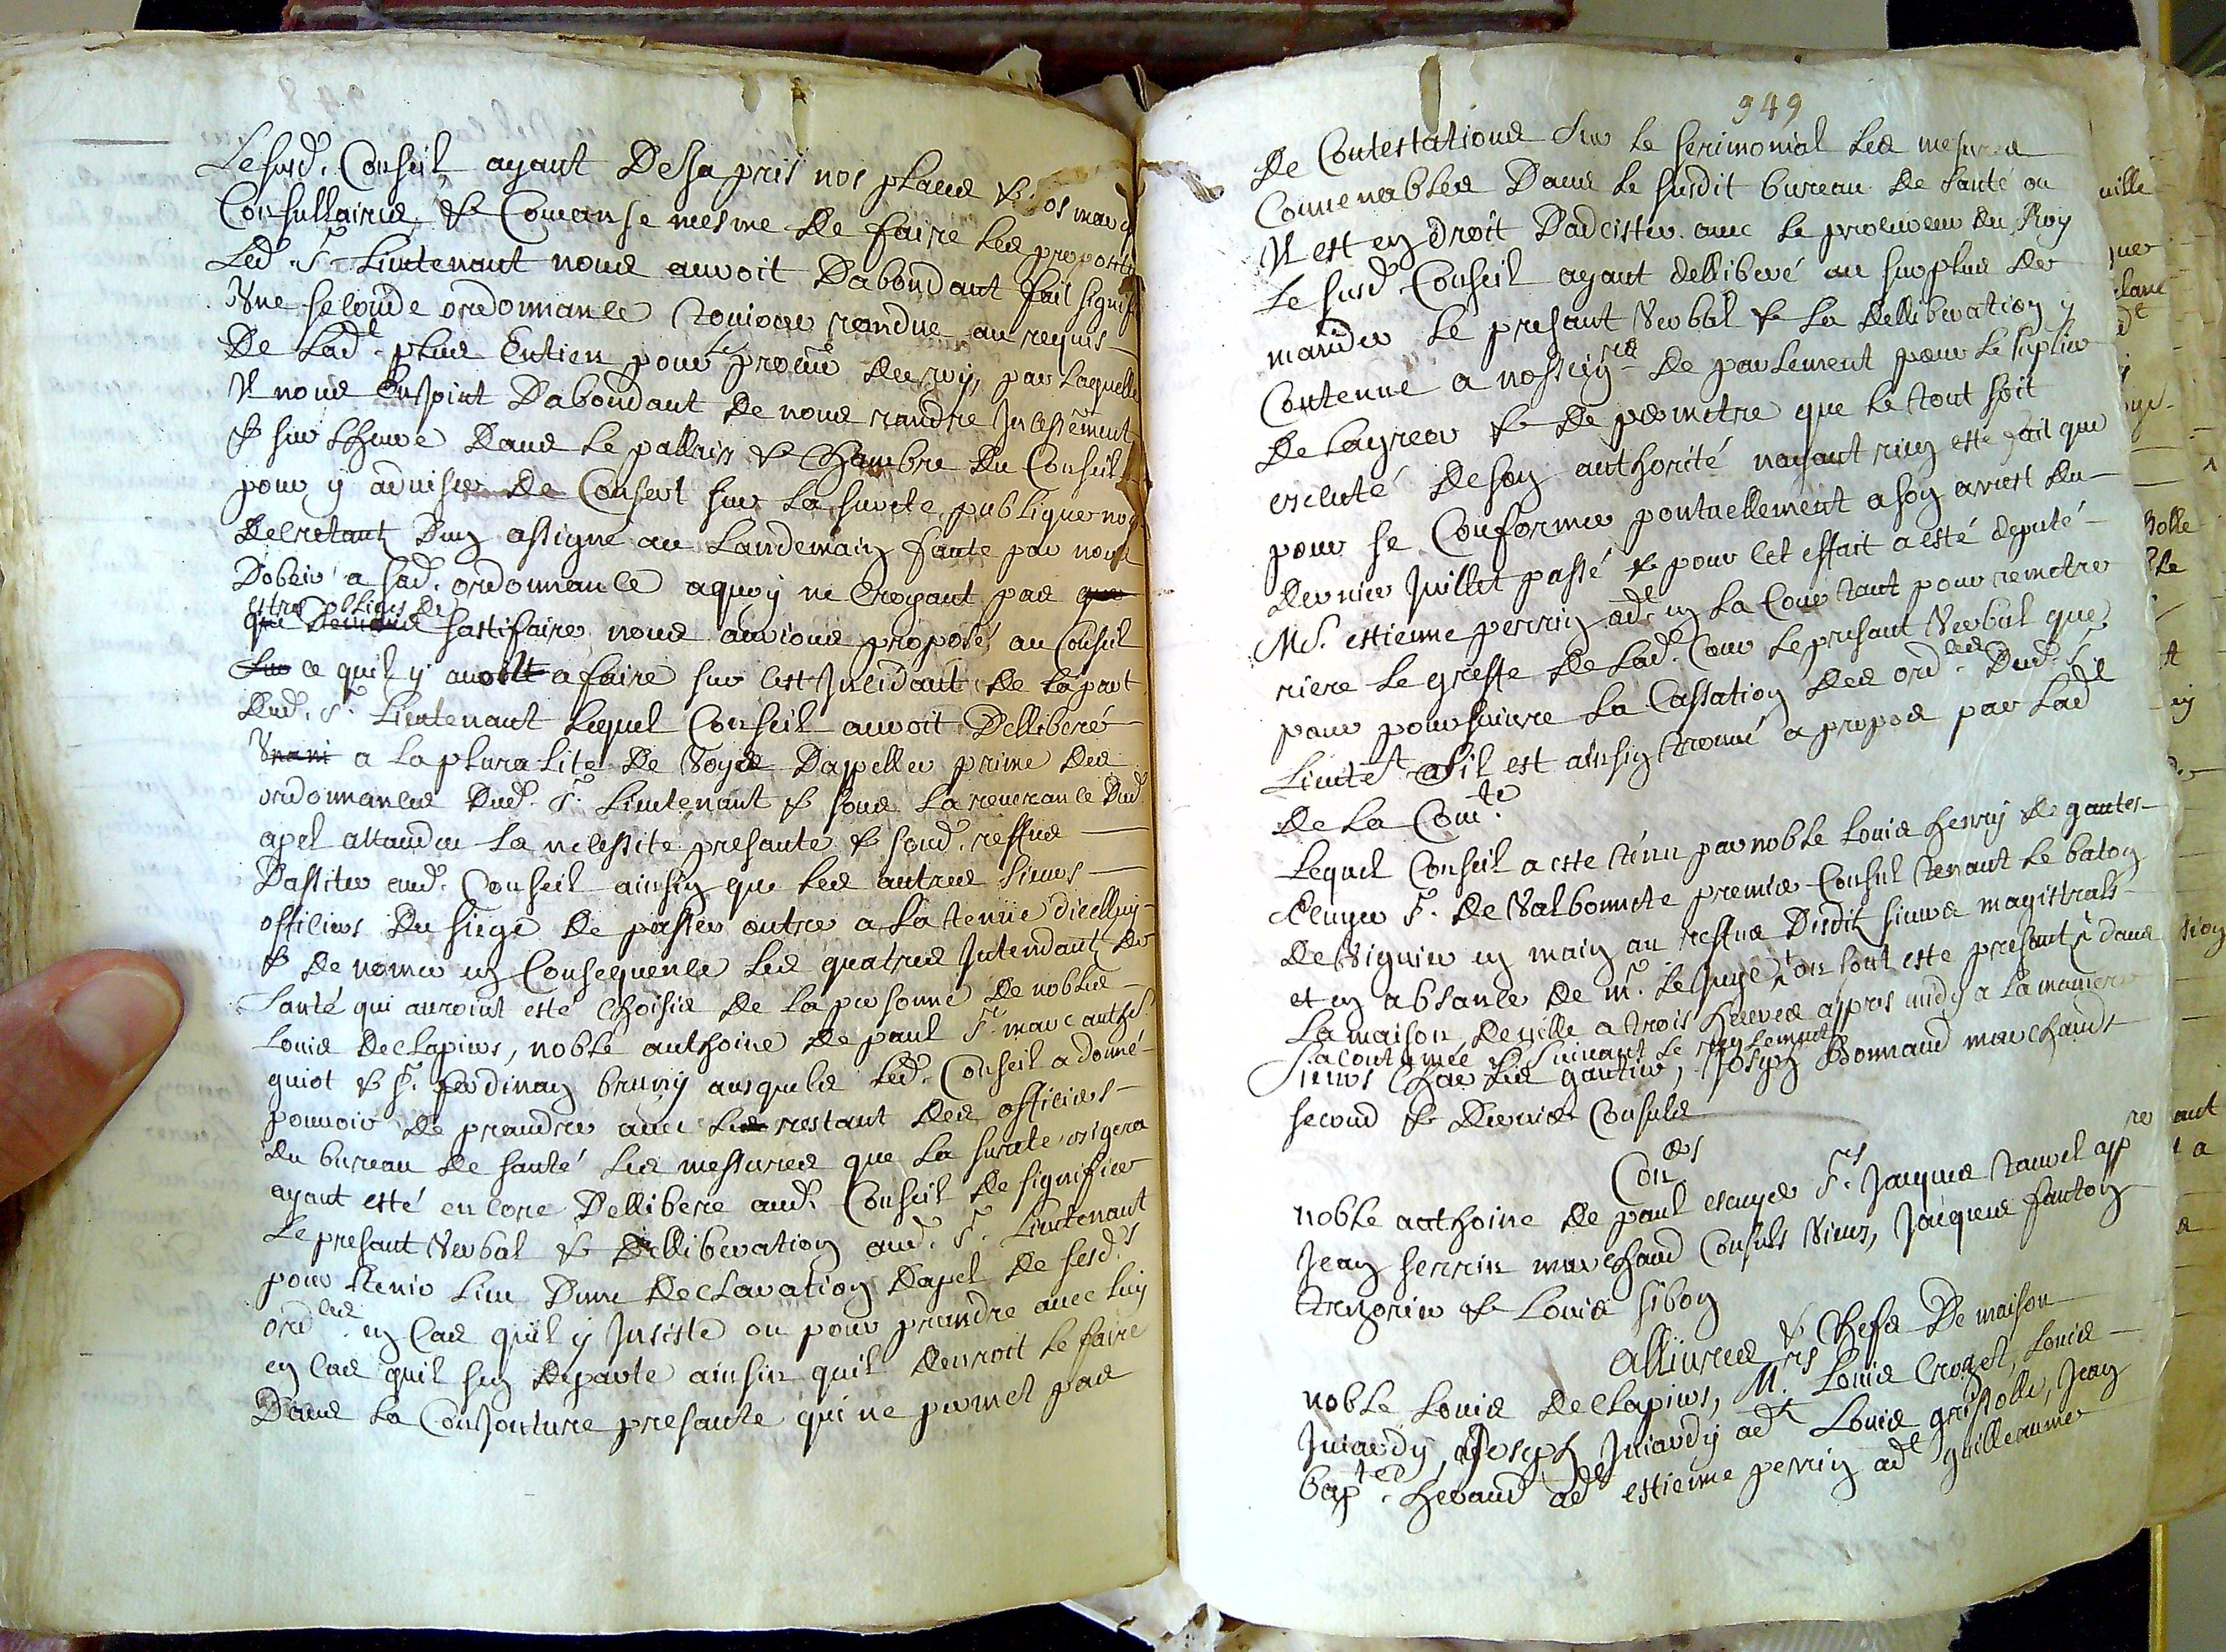 Le susd. Conseil ayant Desja pris nos places & nos marq
Consullaires, & Comanse mesme De faire les propositi
Led. Sr. Lieutenant nous auroit Dabondant fait signif
Une seconde ordonnance toujour randue au requis
De Lad.t plus Entien pour le procur du roy, par Laquelle
Il nous Enjoint Dabondant De nous randre Incessement
& sur Lheure Dans le pallais & Chambre Du Conseil
pour y aduiser De Consert sur La surete publique nos
Decretant Dun assigné au Landemain faute par nous
Dobeir a sad. ordonnance aquoy ne Croyant pas que
estre obliges De
que Deuions sastifaire nous aurions proposé au Conseil
sur ce quil y auoit a faire sur cest Incidant De la part
Dud. Sr. Lieutenant Lequel Conseil auroit Delliberé
Unani a La pluralite De Voyes Dappeller prime Des
ordonnances Dud. Sr. Lieutenant & sous La reuerance Dud.
apel attandu La necessite presante & soud. reffus
Dassiter aud. Conseil ainsin que Les autres sieurs
officiers Du siege De passer outre a La tenue Dicelluy
& De nomer en Consequence Les quatres Intendants De
Santé qui auroint esté Choisis De La personne De nobles
Louis Declapiers, noble anthoine De paul Sr. marc anthe.
guiot & Sr. ferdinan bruny ausquels Led. Conseil a donné
pouvoir De prandre auec Les restant Des officiers
Du bureau De santé Les messures que La surete exigera
ayant esté encore Dellibere aud. Conseil De signifier
Le presant Verbal & Delliberation aud. Sr. Lieutenant
pour tenir Lieu Dune Declaration Dapel De sesd.s
ord.ces en Cas quil y Insiste ou pour prandre auec Luy
en Cas quil sen Departe ainsin quil Deuroit Le faire
Dans La Conjoncture presante qui ne permet pas
949
De Contestations sur Le serimonial Les mesures
Conuenables Dans Le susdit bureau De santé ou
Il est en droit Dadcister auec Le procureur du Roy
Le susd. Conseil ayant delliberé au surplus De
mander Le presant Verbal & La Delliberation y
Contenue a nosseig.rs De parlement pour Le suplier
De Lagreer & De permetre que Le tout soit
execute De son authorité nayant rien esté fait que
pour se Conformer pontuellement a son arrest Du
Dernier Juillet passé & pour Cet effait a esté deputé
Me. estienne perrin ad.t en La Cour tant pour remetre
riere Le greffe De Lad. Cour Le presant Verbal que
pour poursuivre La Cassation Des ord.ces Dud. Sr.
Lieute.t sil est ainsin trouué a propos par Lad.
De La Com.te
Lequel Conseil a este tenu par noble Louis henry de gantes
Escuyer Sr. De Valbonnete premier Consul tenant Le baton
De Viguier en main au reffus Disdit sieurs magistrats
et en absance De mr. Le Juge, ou sont este presants dans
La maison De ville a trois heures appres midy a La maniere
acoutumée & suiuant Le reglement
Sieurs Charles gautier, Joseph Bonnaud marchands
second & Dernier Consuls
Con.ers
noble anthoine De paul escuyer Sr. Jacques tauel app.re
Jean serrin marchand Consuls Vieux, Jacques fanton
tresorier & Louis sibon
alliures & Chefs De maison
noble Louis Declapiers, M.rs Louis Crozet, Louis
Juiardy, Joseph Juiardy ad.t Louis grissolle, Jean
bap.te heraud ad.t estienne perrin ad.t guilleaume